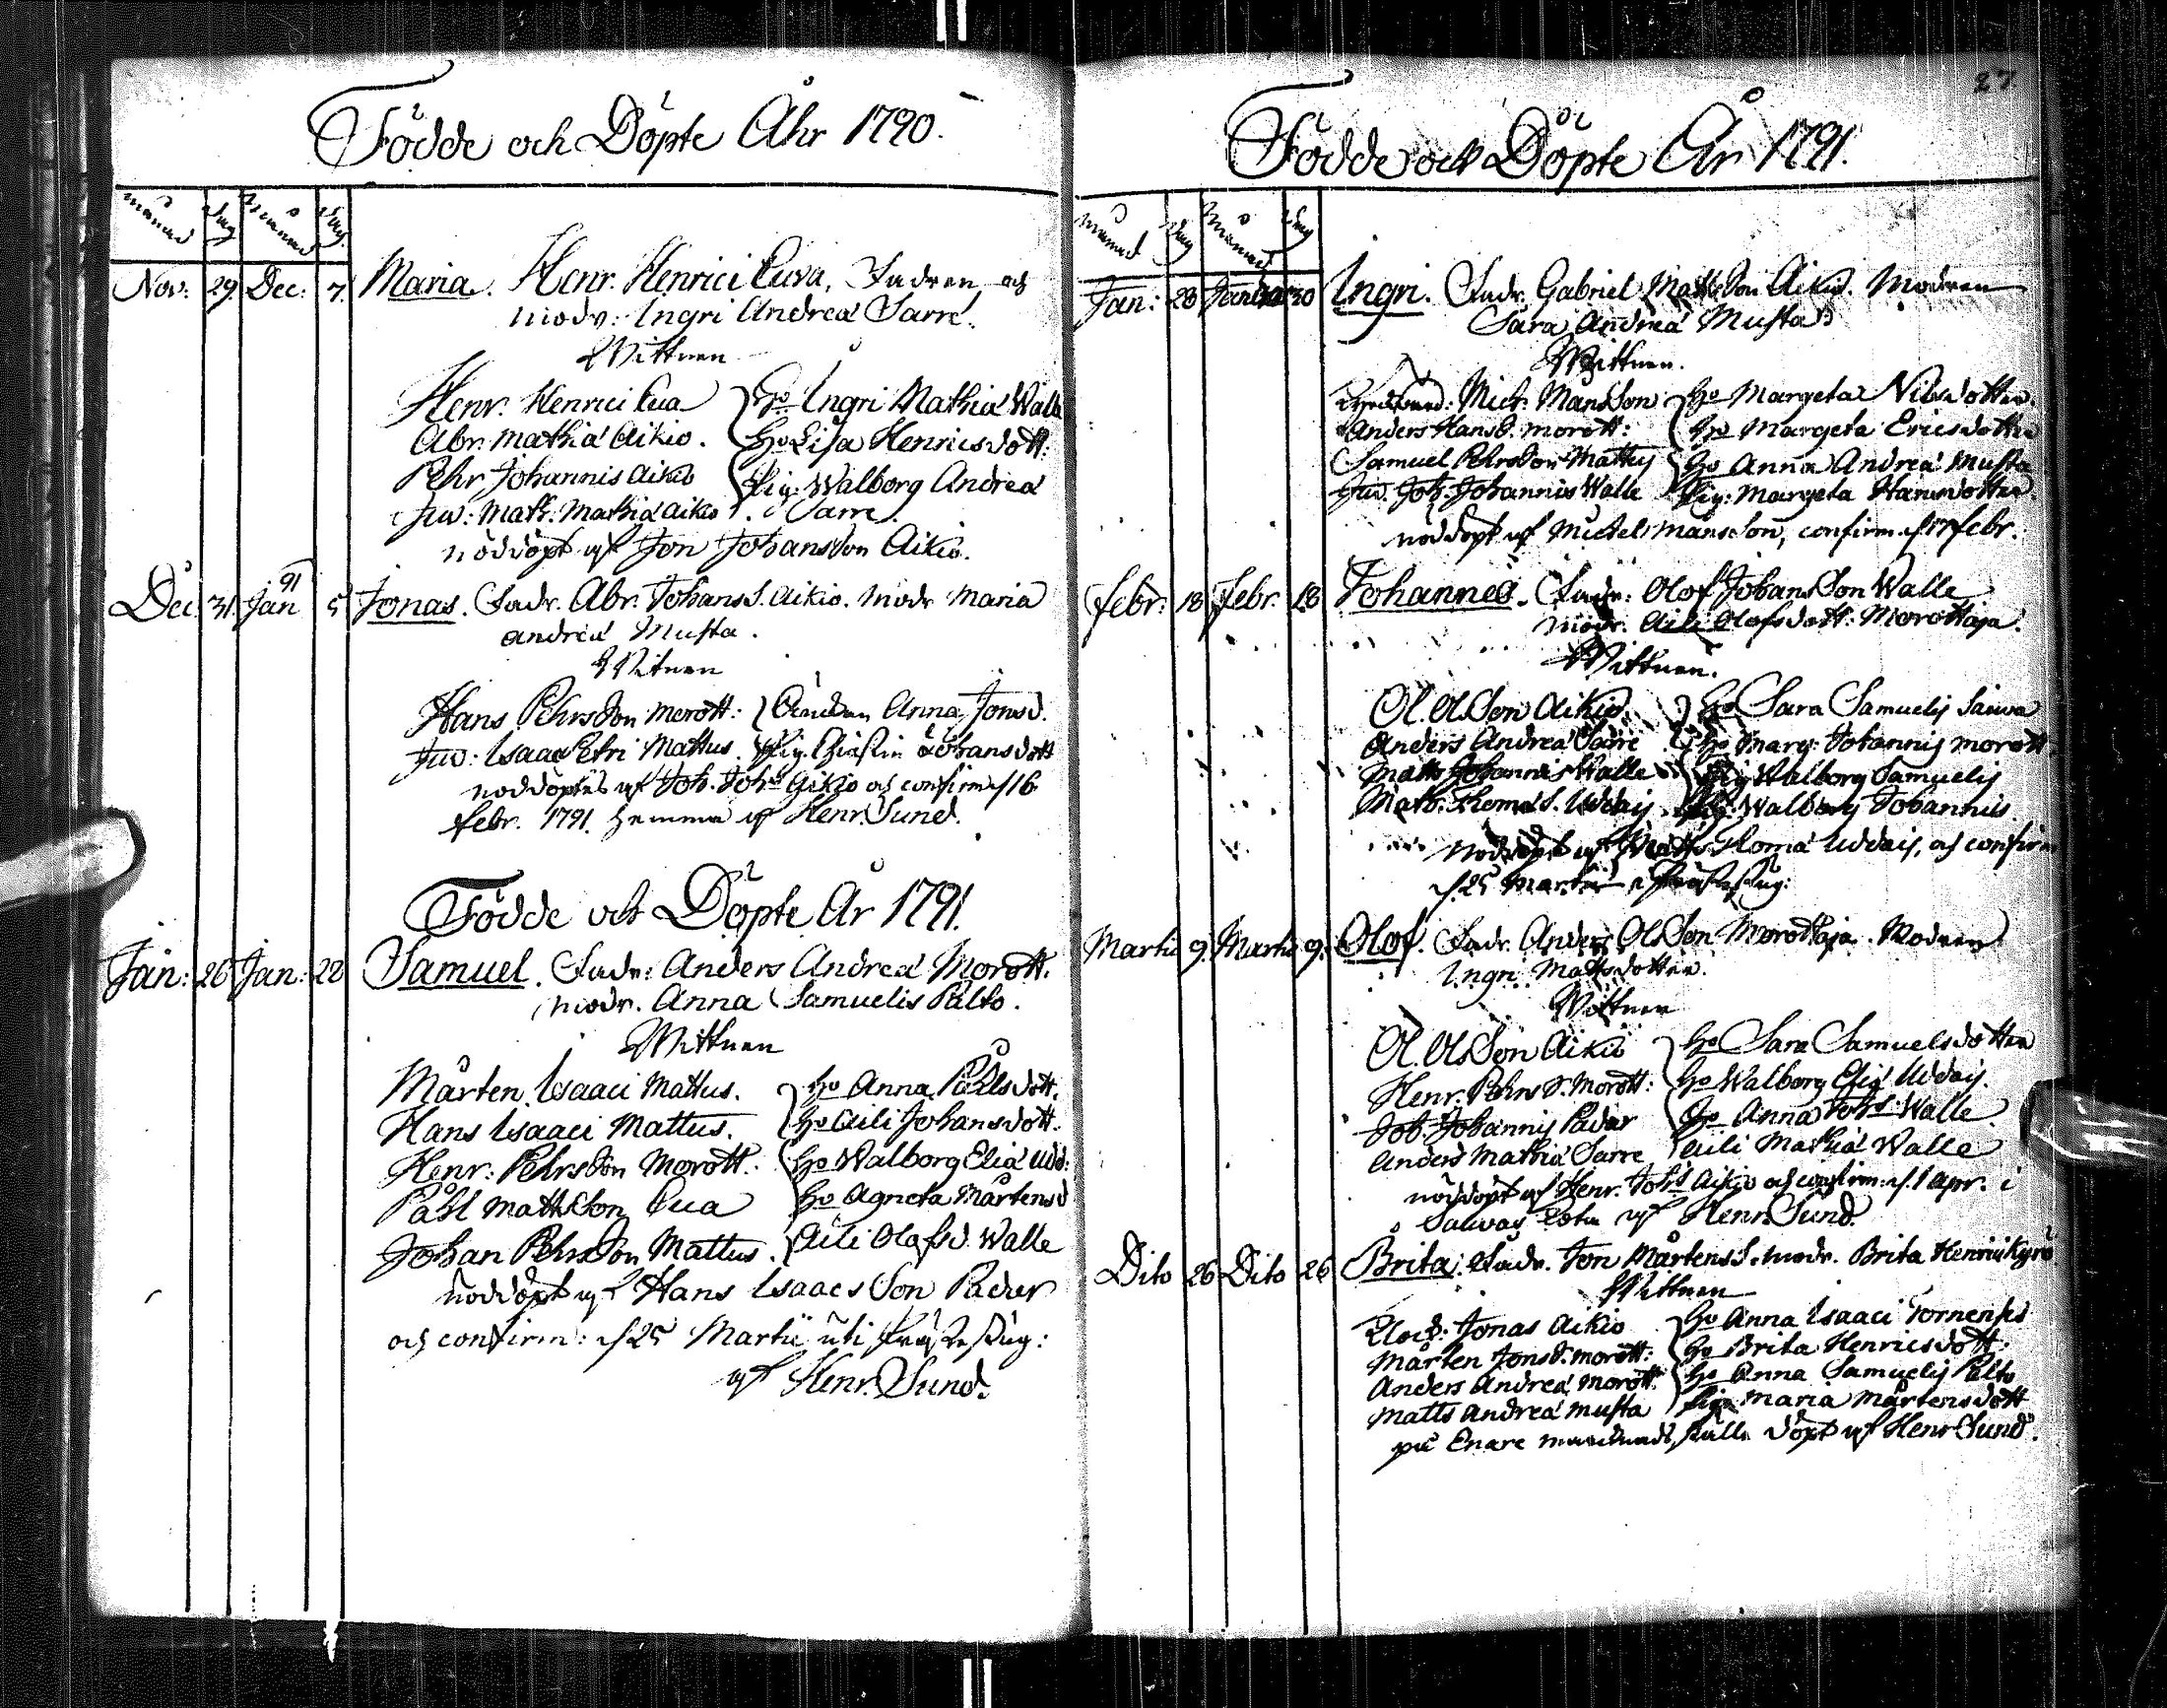 Födde och Döpte Åhr 1790.
månad Dag Månad Dag.
Nov: 29. Dec: 7. Maria. Henr. Henrici Cuva, Fadren och
modr: Ingri Andreæ Sarre.
Wittnen
Henr. Henrici Cua } Ho Ingri Mathiæ Walle
Abr. Mathiæ Aikio. Ho Lisa Henricsdott:
Pehr Johannis Aikio Pig. Walborg Andreæ
Juv: Math. Mathiæ Aikio. Sarre.
nöddöpt af Jon Johansson Aikio.
91
Dec. 31. Jan 5 Jonas. Fadr. Abr. Johans S. Aikio. Modr Maria
Andreæ Musta.
Witnen
Hans Pehrsson Morott: } Änckan Anna Jonsd.
Juv: Isaac Petri Mattus. Pig. Johansdott
nöddöptes af Joh. Johs Aikio och confirm. d. 16
febr. 1791. hemma af Henr. Sund.
Födde och Döpte År 1791.
Jan: 26 Jan: 28 Samuel. Fadr: Anders Andreæ Morott.
Modr. Anna Samuelis Palto.
Wittnen
Mårten Isaaci Mattus. } Ho Anna Påhlsdott.
Hans Isaaci Mattus. Ho Aili Johansdott.
Henr: Pehrsson Morott: Ho Walborg Eliæ Udd:
Påhl Mattsson Cua Ho Agneta Mårtensd
Johan Pehrsson Mattus. Aili Olofsd. Walle
nöddöpt af Hans Isaacsson Padar
och confirm: d. 25 Martii uti Präste stug:
af Henr. Sund.
27.
Födde och Döpte År 1791.
Månad Dag Månad Dag
Jan: 28 Januar 30 Ingri. Fadr. Gabriel Mattsson Aikio. Modren
Sara Andreæ Musta
Wittnen.
Mich. Månsson } Ho Margeta Nilsdotter.
Anders Hans S. Morott: Ho Margeta Ericsdotter
Samuel Pehrsson Mattus Ho Anna Andreæ Musta
Juv. Joh. Johannis Walle Pig: Margeta Hansdotter.
nöddöpt af Michel Månsson, confirm. d. 17 febr.
febr: 18 febr. 18 Johannes. Fadr: Olof Johansson Walle
Modr. Aili Olofsdott: Morottaja.
Wittnen.
Ol. Olsson Aikio. } Ho Sara Samuelis Saiwa
Anders Andreæ Sarre Ho Marg: Johannis Morott
Matts Johannis Walle Pig Walborg Samuelis
Math. Thomæ S. Uddas Pig: Walborg Johannis.
Nöddöpt af Matts Thomæ Uddas, och confirm
d. 25 Martii i Präste stug:
Martii 9. Martii 9. Olof. Fadr. Anders Olsson Morottaja. Modren
Ingri Mattsdotter.
Wittnen
Ol. Olsson Aikio } Ho Sara Samuelsdotter
Henr. Pehrs S. Morott: Ho Walborg Eliæ Uddas.
Joh. Johannis Padar Ho Anna Johs Walle.
Anders Mathiæ Sarre Aili Mathiæ Walle
nöddöpt af Henr. Johs Aikio och confirm. d. 1 apr. i
af Henr. Sund.
Dito 26 Dito 26 Brita. Fadr. Jon Mårtens S. modr. Brita Henrici Kyrö
Wittnen
Klock: Jonas Aikio } Ho Anna Isaaci Tornensis
Mårten Jons S. Morott: Ho Brita Henricsdott:
Anders Andreæ Morott: Ho Anna Samuelis Palto
Matts Andreæ Musta Pig. Maria Mårtensdott
på Enare marcknads ställe döpt af Henr. Sund.